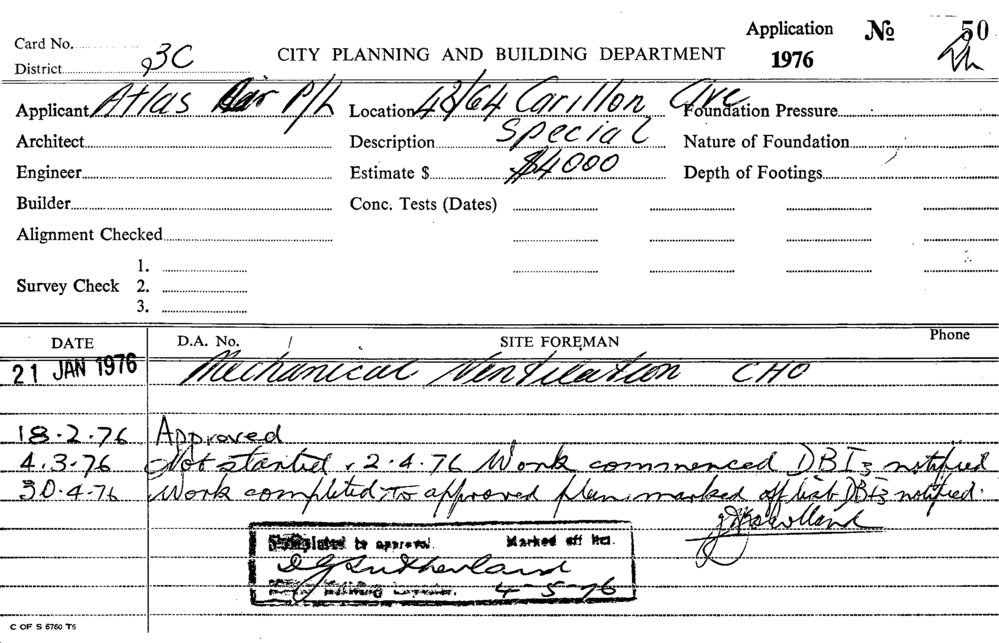 Card No. Application No 50
District 3C CITY PLANNING AND BUILDING DEPARTMENT 1976
Applicant Atlas Air P/L Location 48/64 Carillon Ave Foundation Pressure
Architect Description Special Nature of Foundation
Engineer Estimate $ $4000 Depth of Footings
Builder Conc. Tests (Dates)
Alignment Checked
1.
Survey Check 2.
3.
DATE D.A. No. SITE FOREMAN Phone
21 JAN 1976 Mechanical Ventilation CHO
18.2.76 Approved
4.3.76 Not started. 2.4.76 Work commenced DBI3 notified
30.4.76 Work completed to approved plan marked off list DBI3 notified.
Completed to approval. Marked off list.
D G Sutherland
Building Inspector. 4-5-76
C OF S 6760 T5